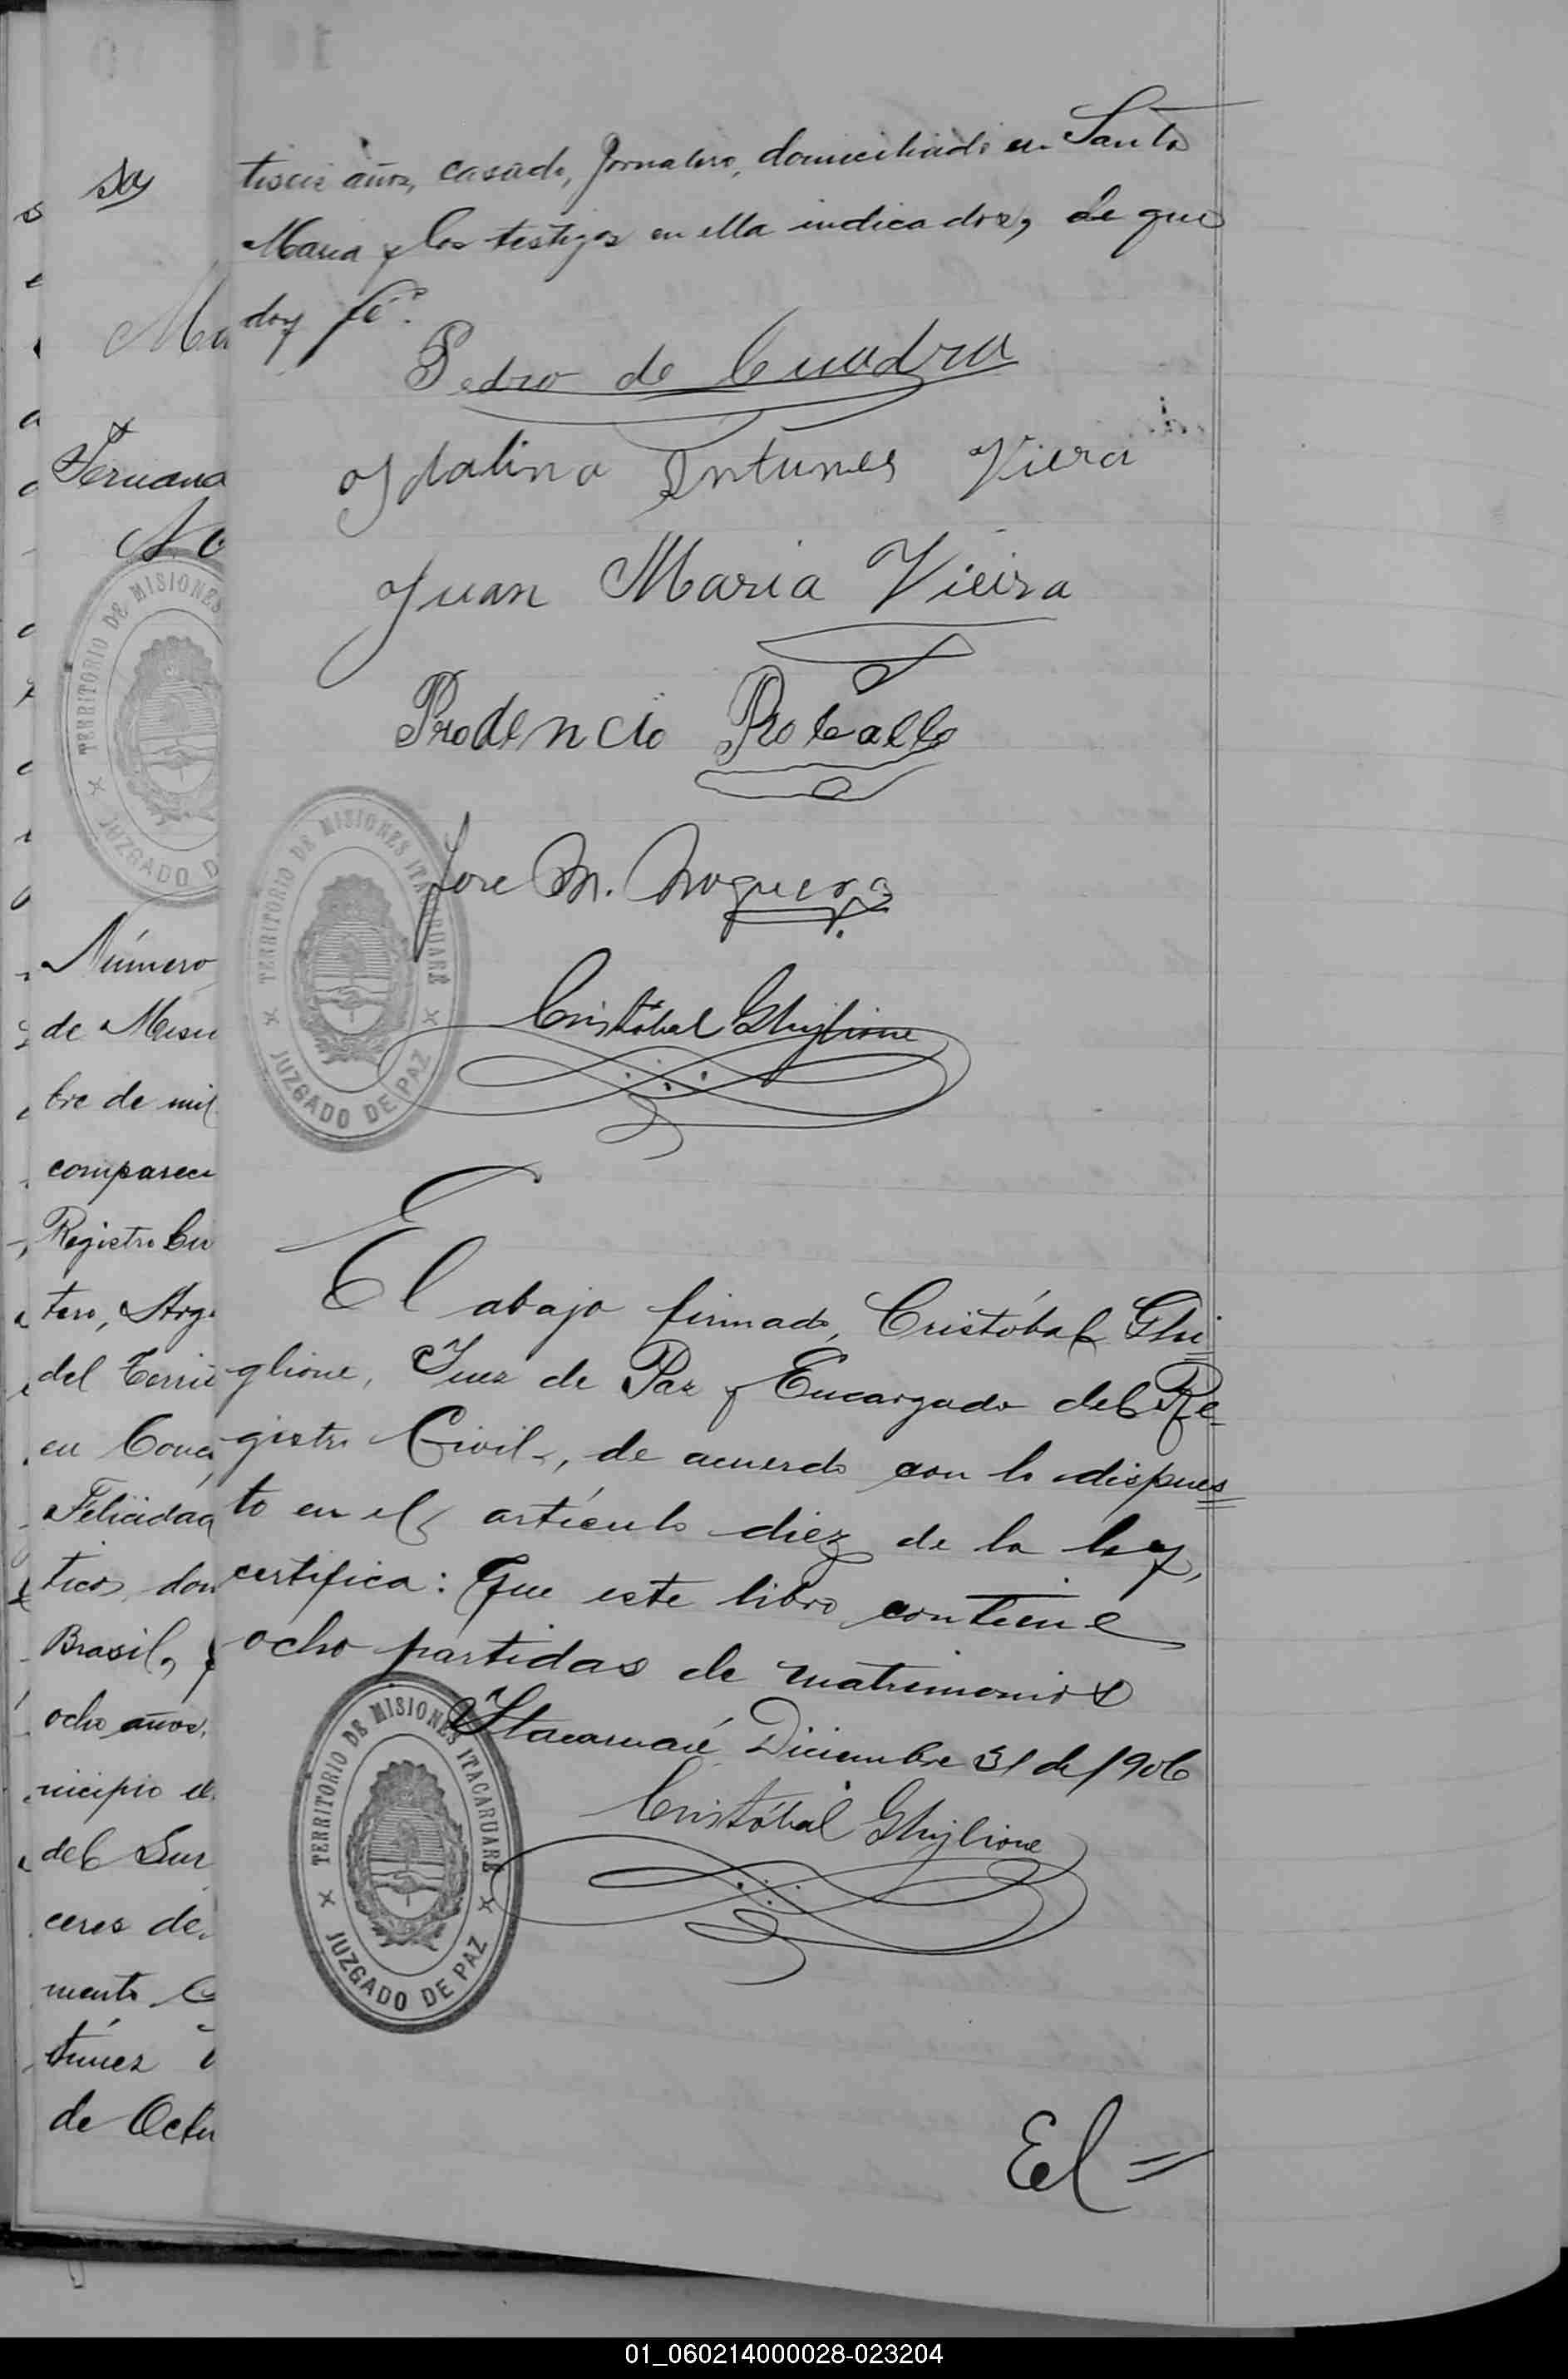 tiseis años, casado, jornalero, domiciliado en Santa
Maria y los testigos en ella indicados, de que
doy fé.
Pedro de Cuadra
Idalino Antunes Viera
Juan Maria Vieira
Prodencio Roballo
Jose M. Noguera
TERRITORIO DE MISIONES ITACARUARÉ
JUZGADO DE PAZ
Cristóbal Ghiglione
El abajo firmado, Cristóbal Ghi
glione, Juez de Paz y Encargado del Re-
gistro Civil, de acuerdo con lo dispues
to en el artículo diez de la ley,
certifica: Que este libro contiene
ocho partidas de matrimonios
Itacaruaré Diciembre 31 de 1906
Cristóbal Ghiglione
TERRITORIO DE MISIONES ITACARUARÉ
JUZGADO DE PAZ
El =
TERRITORIO DE MISIONES
JUZGADO D
Número
de Misi
bre de mil
compareci
Registro Civ
tero, Arg
del Terri
en Conc
Felicidad
ticos, dom
Brasil, y
ocho años,
nicipio d
del Sur
ceres de
mento C
túnez
de Octu
01_060214000028-023204